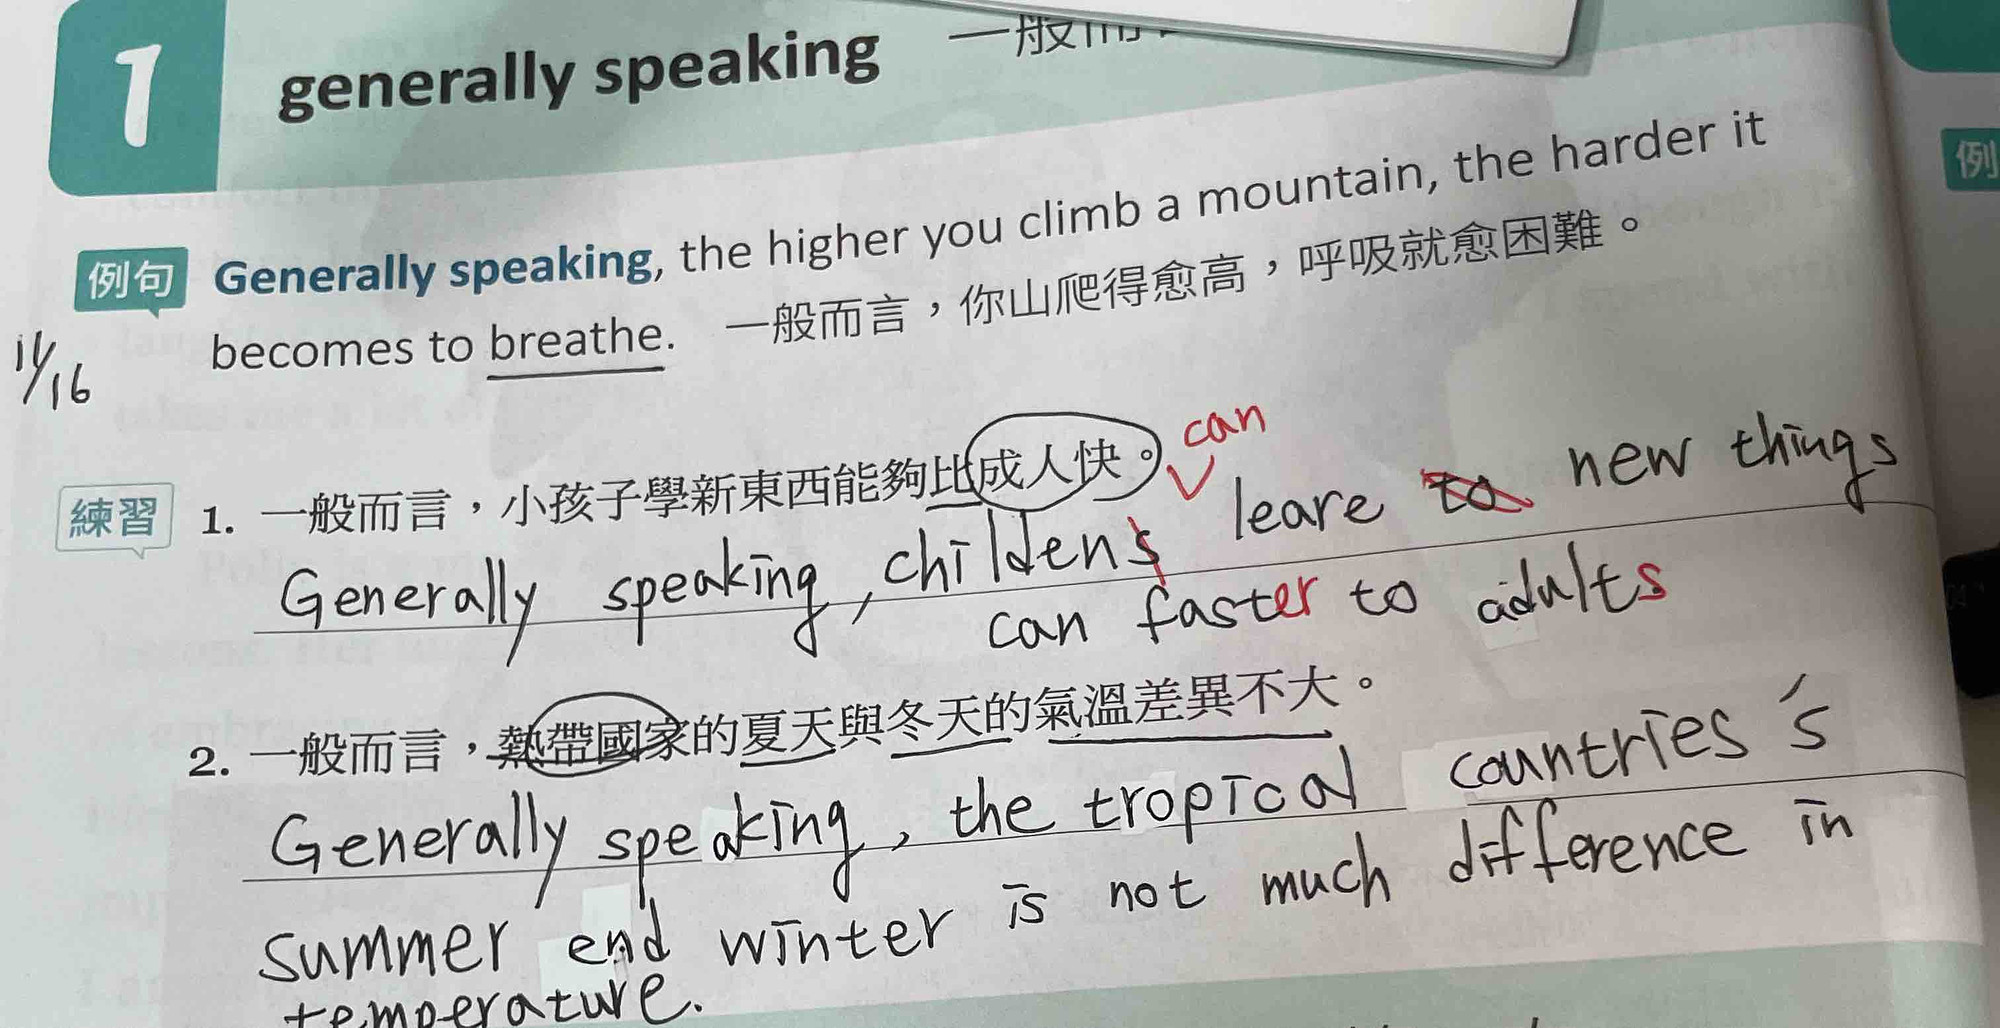 1 generally speaking 一般
例句 Generally speaking, the higher you climb a mountain, the harder it
becomes to breathe. 一般而言，你山爬得愈高，呼吸就愈困難。
例
11/16
練習 1. 一般而言，小孩子學新東西能夠比成人快。
can
Generally speaking, childens leare to new things
can faster to adults
2. 一般而言，熱帶國家的夏天與冬天的氣溫差異不大。
Generally speaking, the tropical countries's
summer end winter is not much difference in
temperature.